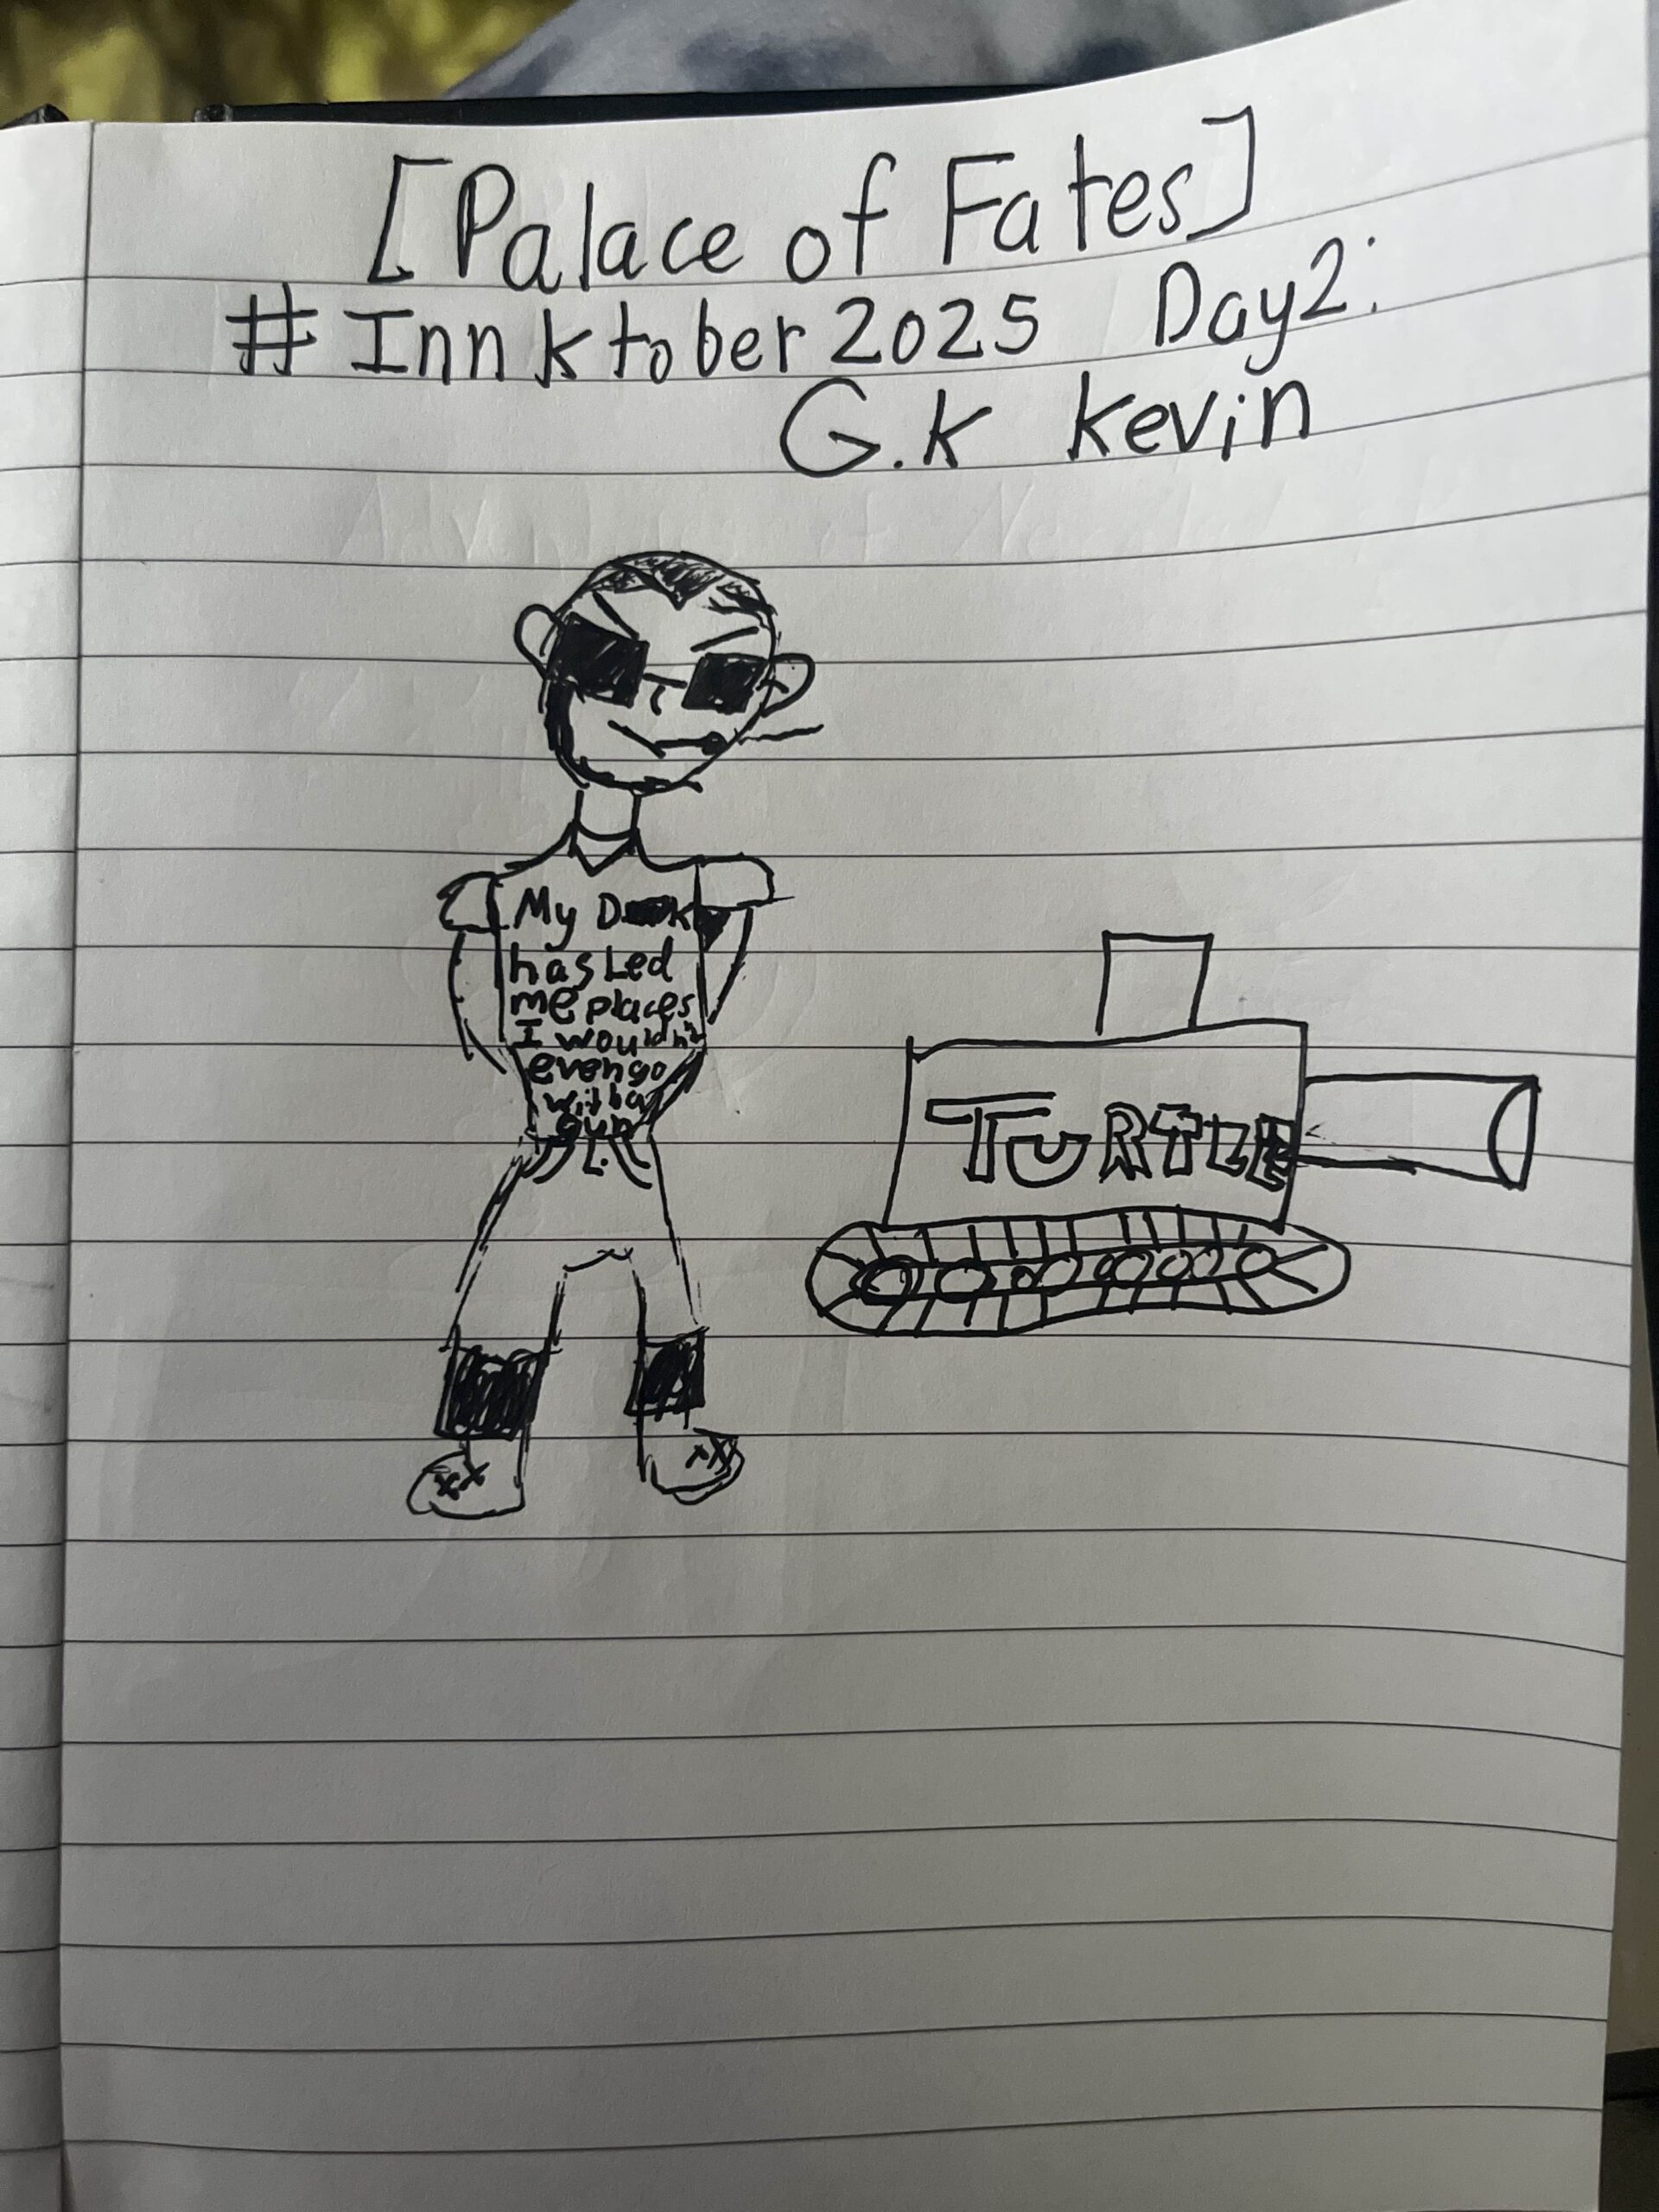 [Palace of Fates]
#Innktober 2025 Day2:
G.K Kevin
My D k
has Led
me places
I wouldn't
even go
with a
gun
TURTLE